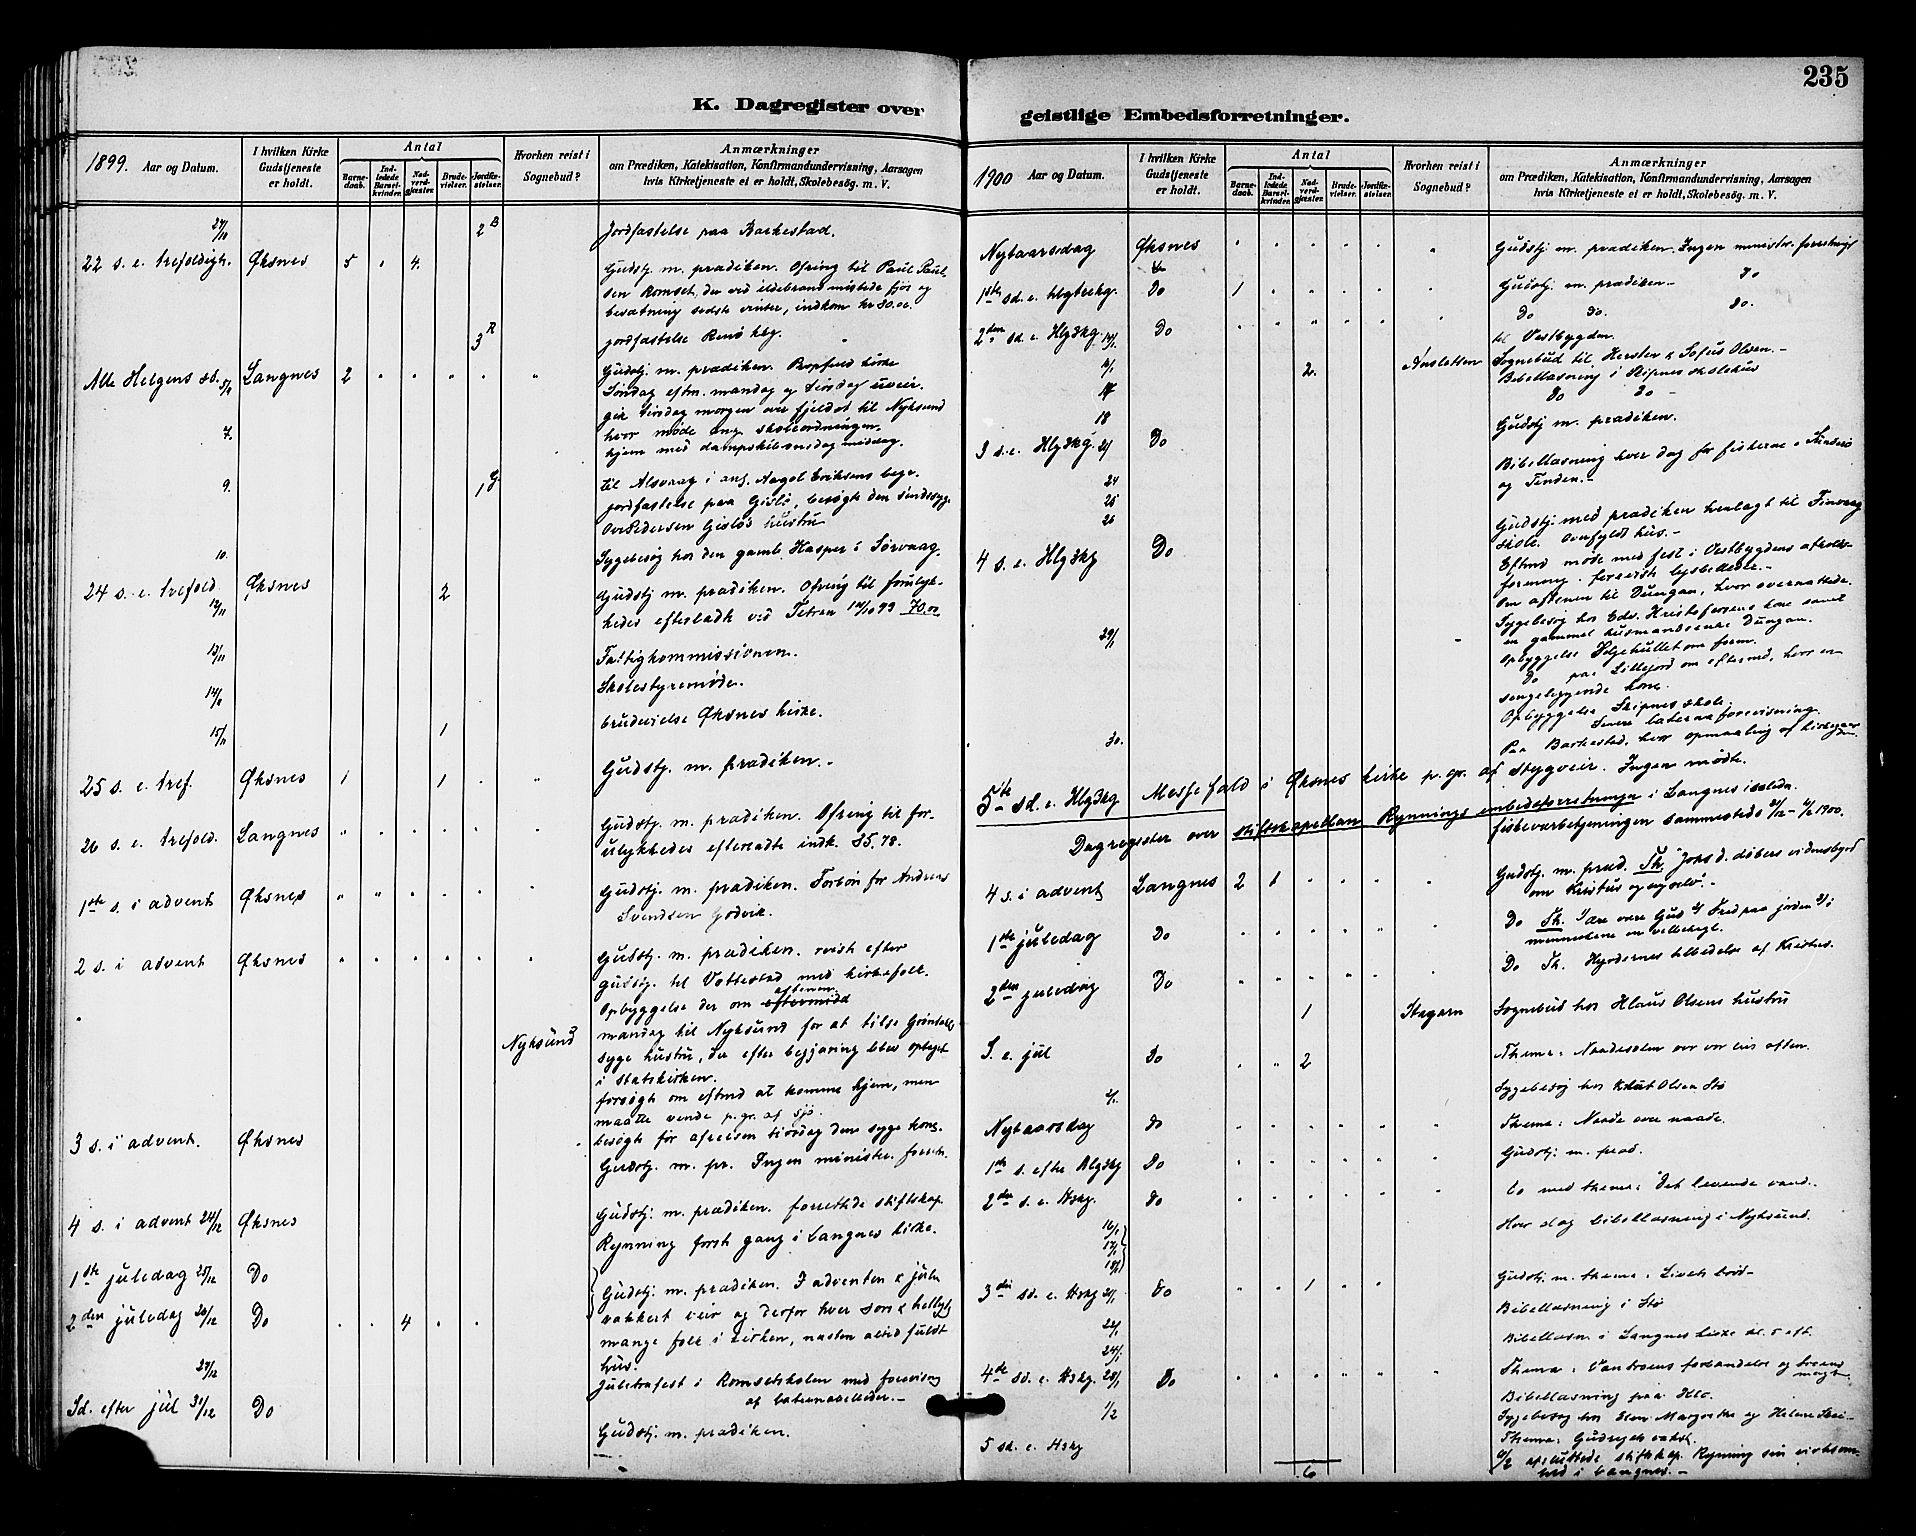 235
K. Dagregister over
1899. Aar og Datum.
I hvilken Kirke Gudstjeneste er holdt.
Antal
Barne-daab.
Ind-ledede Barsel-kvinder.
Nad-verd-gjester.
Brude-vielser.
Jordfæ-stelser.
Hvorhen reist i Sognebud?
Anmærkninger
om Prædiken, Katekisation, Konfirmandundervisning, Aarsagen
hvis Kirketjeneste ei er holdt, Skolebesøg. m. V.
2 B Jordfastelse paa Barkestad.
22 s. e. trefoldigh. Øksnes 5 " 4. Gudstj. m. prædiken. Ofring til Paul Paul
sen Romset, der ved ildebrand mistede fjøs og
besætning sidste vinter, indkom kr 80.00
3 R jordfastelse Renø kbg.
Alle Helgens sd. 5/11 Langnes 2 " " " " " Gudstj. m. prædiken. Propfuld kirke
Søndag eftm. mandag og tirsdag uveir.
gik tirsdag morgen over fjeldet til Nyksund
7. hvor møde ang. skoleordningen.
hjem med dampskib onsdag middag.
9. 1 G til Alsvaag i anl. Eriksens begr.
jordfastelse paa Gislø, besøgte den sindssyge
Pedersen Gisløs hustru
10. Sygebesøg hos den gamle Kasper i Sørvaag.
24 s. e. trefold 12/11 Øksnes 2 Gudstj. m. prædiken. Ofring til forulyk-
hedes efterladte ved 99 70.00
13/11 Fattigkommissionen.
14/11 Skolestyremøde.
15/11 1 brudevielse Øksnes kirke.
25 s. e. tref. Øksnes 1 1 " Gudstj. m. prædiken.-
26 s. e. trefold. Langnes " " " " " " Gudstj. m. prædiken. Ofring til for-
ulykkedes efterladte indk. 35.78.
1ste s. i advent Øksnes " " " " " " Gudstj. m. prædiken. Forbøn for Andreas
Svendsen Godvik.
2 s. i advent Øksnes " " " " " " Gudstj. m. prædiken. reist efter
gudstj. til Vottestad med kirkefolk.
Opbyggelse der om aftenen
Nyksund mandag til Nyksund for at tilse
syge hustru, der efter begjæring blev optaget
i statskirken.
forsøgte om eftmd at komme hjem, men
maatte vende p. gr. af sjø.
besøgte før afreisen tirsdag den syge kone.
3 s. i advent. Øksnes Gudstj. m. pr. Ingen minister. forretn.
4 s. i advent 24/12 Øksnes Gudstj. m. prædiken. forrettede stiftskap.
Rynning først gang i Langnes kirke.
1ste juledag 25/12 Do Gudstj. m. prædiken. I adventen & julen
2den juledag 26/12 Do " " 4 " " vakkert veir og derfor hver søn & helligdg
mange folk i kirken, næsten altid fuldt
hus.
27/12 Juletræfest i Romsetskolen med forevisning
af laternabilleder.-
Sd. efter jul 31/12 Do Gudstj. m. prædiken.
geistlige Embedsforretninger.
1900 Aar og Datum.
I hvilken Kirke Gudstjeneste er holdt.
Antal
Barne-daab.
Ind-ledede Barsel-kvinder.
Nad-verd-gjester.
Brude-vielser.
Jordfæ-stelser.
Hvorhen reist i Sognebud?
Anmærkninger
om Prædiken, Katekisation, Konfirmandundervisning, Aarsagen
hvis Kirketjeneste ei er holdt, Skolebesøg. m. V.
Nytaarsdag Øksnes " " " " " " Gudstj. m. prædiken. Ingen minister. forretnig
1ste sd. e. Hlgtrekg. Do 1 " " " " " Gudstj. m. prædiken.- do
2den sd. e. Hlgtkg. 14/1 Do " " " " " " Do do. do.
til Vestbygden.
2. Sognebud til Kersten & Sofus Olsen.-
Bibellæsning i Skipnes skolehus
17 Do do -
18 Gudstj m. prædiken.
3 s. e. Hlg3kg. 21/1 Do
Bibellæsning hver dag for fiskerne i
24 og Tinden.-
25
26 Gudstj. med prædiken henlagt til Finvaag
4 s. e. Hlg3kg Do skole. Overfyldt hus.-
Eftmd møde med fest i Vestbygdens afholds-
forening. foreviste lysbilleder.-
Om aftenen til Dungan, hvor overnattede.
Sygebesøg hos Edv. Kristofersens kone samt
29/1 en gammel husmandsenke Dungan.
Opbyggelse om form.
Do paa Lillefjord om eftermd, hvor en
sengeliggende kone.
Opbyggelse Skipnes skole.
Senere laternaforevisning.
30. Paa Barkestad, hvor opmaaling af kirkegaar
den.
5te sd. e. Hlg3kg Messefald i Øksnes kirke p. gr. af stygveir. Ingen mødte.
Dagregister over stiftskapellan Rynnings embedsforretninger i Langnes
fiskeværbetjeningen sammesteds 1900.
4 s. i advent Langnes 2 1 " " " " Gudstj. m. præd. Th. Johs d. døbers vidnesbyrd
om Kristus og sig selv.-
1ste juledag Do " " " " " " Do Th. 1) ære være Gud 2) Fred paa jorden 3) i
menneskene en velbehagl.
2den juledag Do " " " " " Do Th. Hyrdernes tilbedelse af Kristus.
1 Sognebud hos Klaus Olsens hustru
S. e. jul Do " " 2 Thema: Naadesolen
Sygebesøg hos Knut Olsen Stø
Nytaarsdag Do " " " " " " Thema: Naade over naade.
1ste s. efter Hlg3kg Do " " " " " " Gudstj. m. præd.
2den s. e. H3kg. Do " " " " " " Do med thema: Det levende vand.
16/1 Hver dag bibellæsning i Nyksund.
17/1
18/1
3die sd. e. H3kg 21/1 Do " " 1 " " Gudstj. m. thema: Livets brød-
Bibellæsning i Stø
22/1 Bibellæsn. i Langnes kirke
24/1
4de sd. e. H3kg. 28/1 Do " " " " " " Thema: Vantroens forbandelse og troens
magt.
Bibellæsning paa Klo.
1/2 Sygebesøg hos Elen Margrethe og Helene
5 sd. e. H3kg Thema: Gudsrigets vækst.
afsluttede stiftskap. Rynning sin virksom-
hed i Langnes.-
6